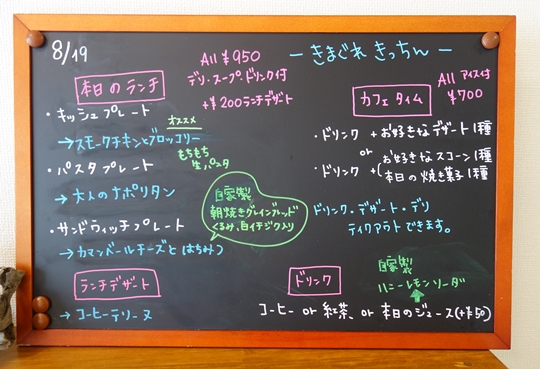 8/19
All ¥950
デリ・スープ・ドリンク付
+¥200ランチデザート
ーきまぐれ きっちんー
本日のランチ
・キッシュプレート
→スモークチキンとブロッコリー
オススメ
もちもち
生パスタ
・パスタプレート
→大人のナポリタン
・サンドウィッチプレート
→カマンベールチーズとはちみつ
自家製
朝焼きグレインブレッド
くるみ、白イチジク入り
ランチデザート
→コーヒーテリーヌ
カフェタイム
All アイス付
¥700
・ドリンク + お好きなデザート1種
or
・ドリンク + (お好きなスコーン1種
本日の焼き菓子1種
ドリンク・デザート・デリ
テイクアウトできます。
ドリンク
自家製
ハニーレモンソーダ
コーヒー or 紅茶 or 本日のジュース(+¥50)